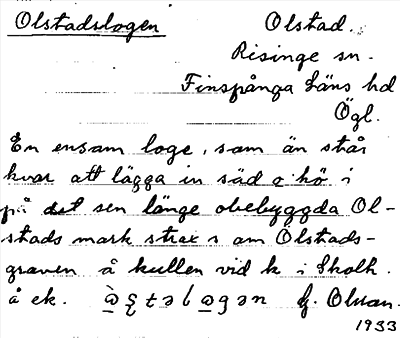 Olstadslogen Olstad.
Risinge sn.
Finspånga läns hd
Ögl.
En ensam loge, som än står
kvar att lägga in säd o hö i
på det sen länge obebyggda Ol-
stads mark strax s om Ölstads-
graven å kullen vid k i Skolh.
å ek.
1933